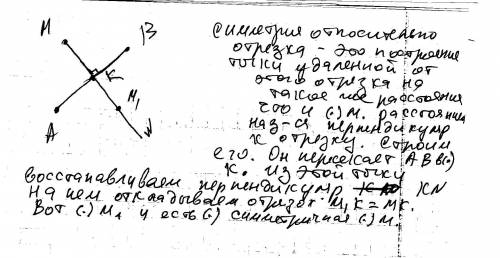 M
В
К
М₁
А
N
Симетрия относительно
отрезка - это построение
точки удаленной от
этого отрезка на
такое же расстояния
что и (·) М. расстояния
наз-ся перпендикуляр
к отрезку. Строим
его. Он пересекает АВ в (·)
К. Из этой точки
восстанавливаем перпендикуляр KN
На нем откладываем отрезок М₁К = МК.
Вот (·) М₁ и есть (·) симетричная (·) М.